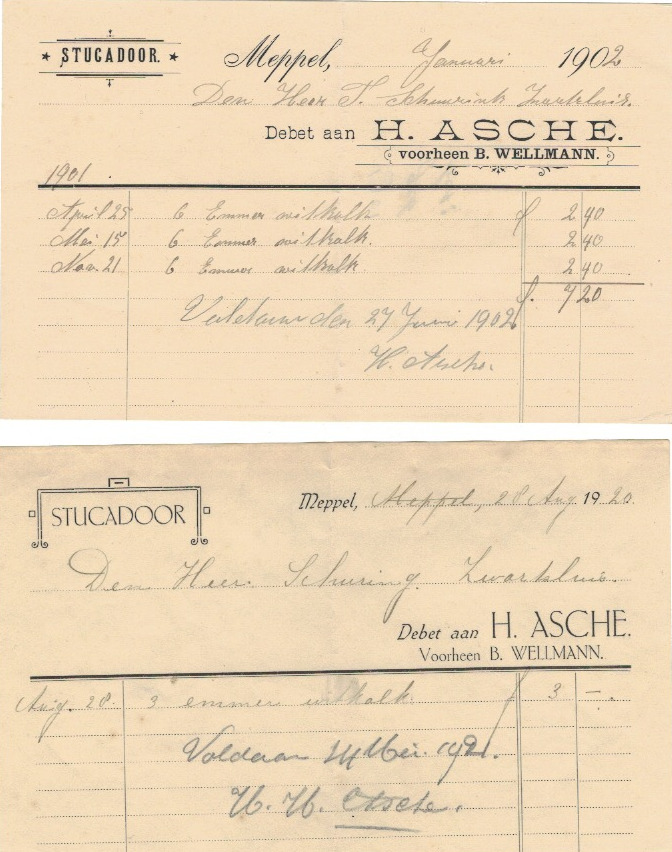 ★ STUCADOOR. ★
Meppel, Januari 1902
Den Heer T. Schuurink Zwartsluis.
Debet aan H. ASCHE.
voorheen B. WELLMANN.
1901.
April 25 6 Emmer witkalk f 2 40
Mei 15 6 Emmer witkalk. 2 40
Nov. 21 6 Emmer witkalk 2 40
f. 7 20
den 27 Juni 1902
H. Asche.
STUCADOOR
Meppel, Meppel, 28 Aug 1920
Den Heer Schuring. Zwartsluis.
Debet aan H. ASCHE.
Voorheen B. WELLMANN.
Aug. 28. 3 emmer witkalk f 3 –.
Voldaan Mei
H. H. Asche.